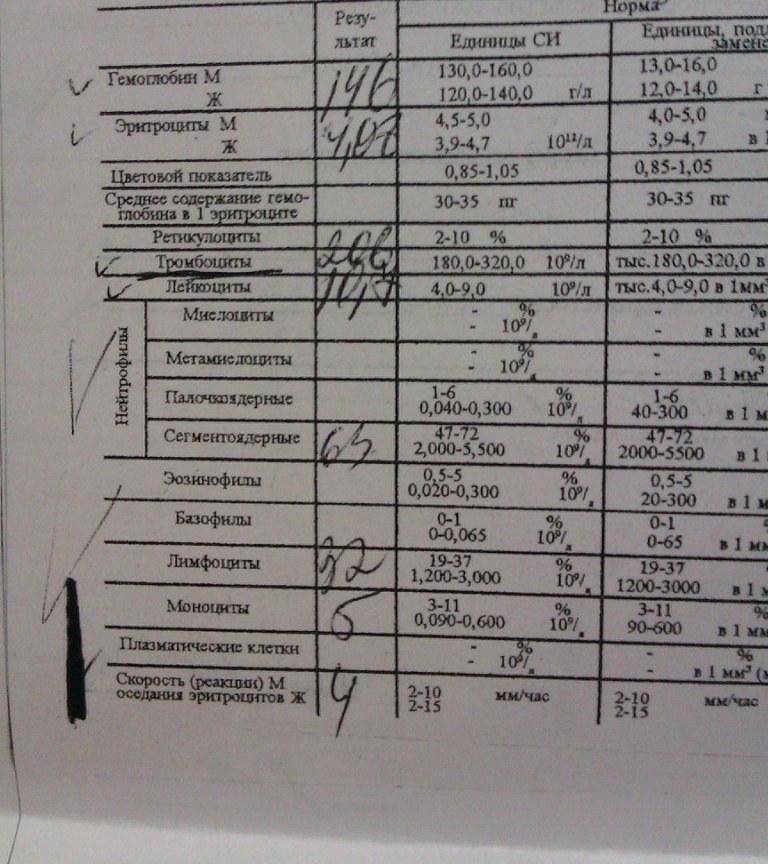 Резу-
льтат
Норма
Единицы СИ
Единицы, подл
замене
Гемоглобин М
Ж
146
130,0-160,0
120,0-140,0 г/л
13,0-16,0
12,0-14,0 г
Эритроциты М
Ж
4,5-5,0
3,9-4,7 10¹²/л
4,0-5,0
3,9-4,7 в 1
Цветовой показатель
0,85-1,05
0,85-1,05
Среднее содержание гемо-
глобина в 1 эритроците
30-35 пг
30-35 пг
Ретикулоциты
2-10 %
2-10 %
Тромбоциты
180,0-320,0 10⁹/л
тыс.180,0-320,0 в
Лейкоциты
4,0-9,0 10⁹/л
тыс.4,0-9,0 в 1мм³
Нейтрофилы
Миелоциты
- %
- 10⁹/л
- %
- в 1 мм³
Метамиелоциты
- %
- 10⁹/л
- %
- в 1 мм³
Палочкоядерные
1-6 %
0,040-0,300 10⁹/л
1-6
40-300 в 1 м
Сегментоядерные
63
47-72 %
2,000-5,500 10⁹/л
47-72
2000-5500 в 1
Эозинофилы
0,5-5 %
0,020-0,300 10⁹/л
0,5-5
20-300 в 1 м
Базофилы
0-1 %
0-0,065 10⁹/л
0-1
0-65 в 1 мм
Лимфоциты
32
19-37 %
1,200-3,000 10⁹/л
19-37
1200-3000 в 1 м
Моноциты
5
3-11 %
0,090-0,600 10⁹/л
3-11 %
90-600 в 1 мм
Плазматические клетки
- %
- 10⁹/л
- %
- в 1 мм³ (м
Скорость (реакции) М
оседания эритроцитов Ж
4
2-10 мм/час
2-15
2-10 мм/час
2-15